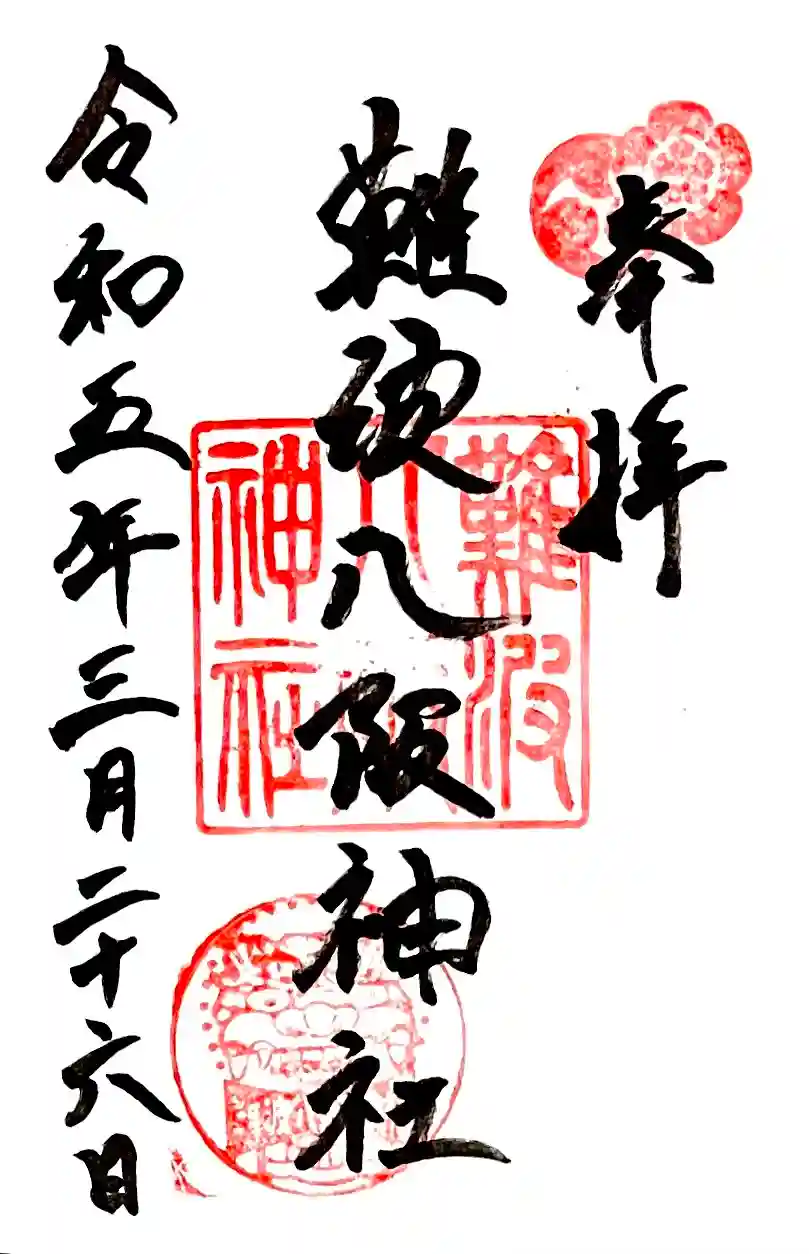 奉拝
難波八阪神社
令和五年三月二十六日
難波
八阪
神社